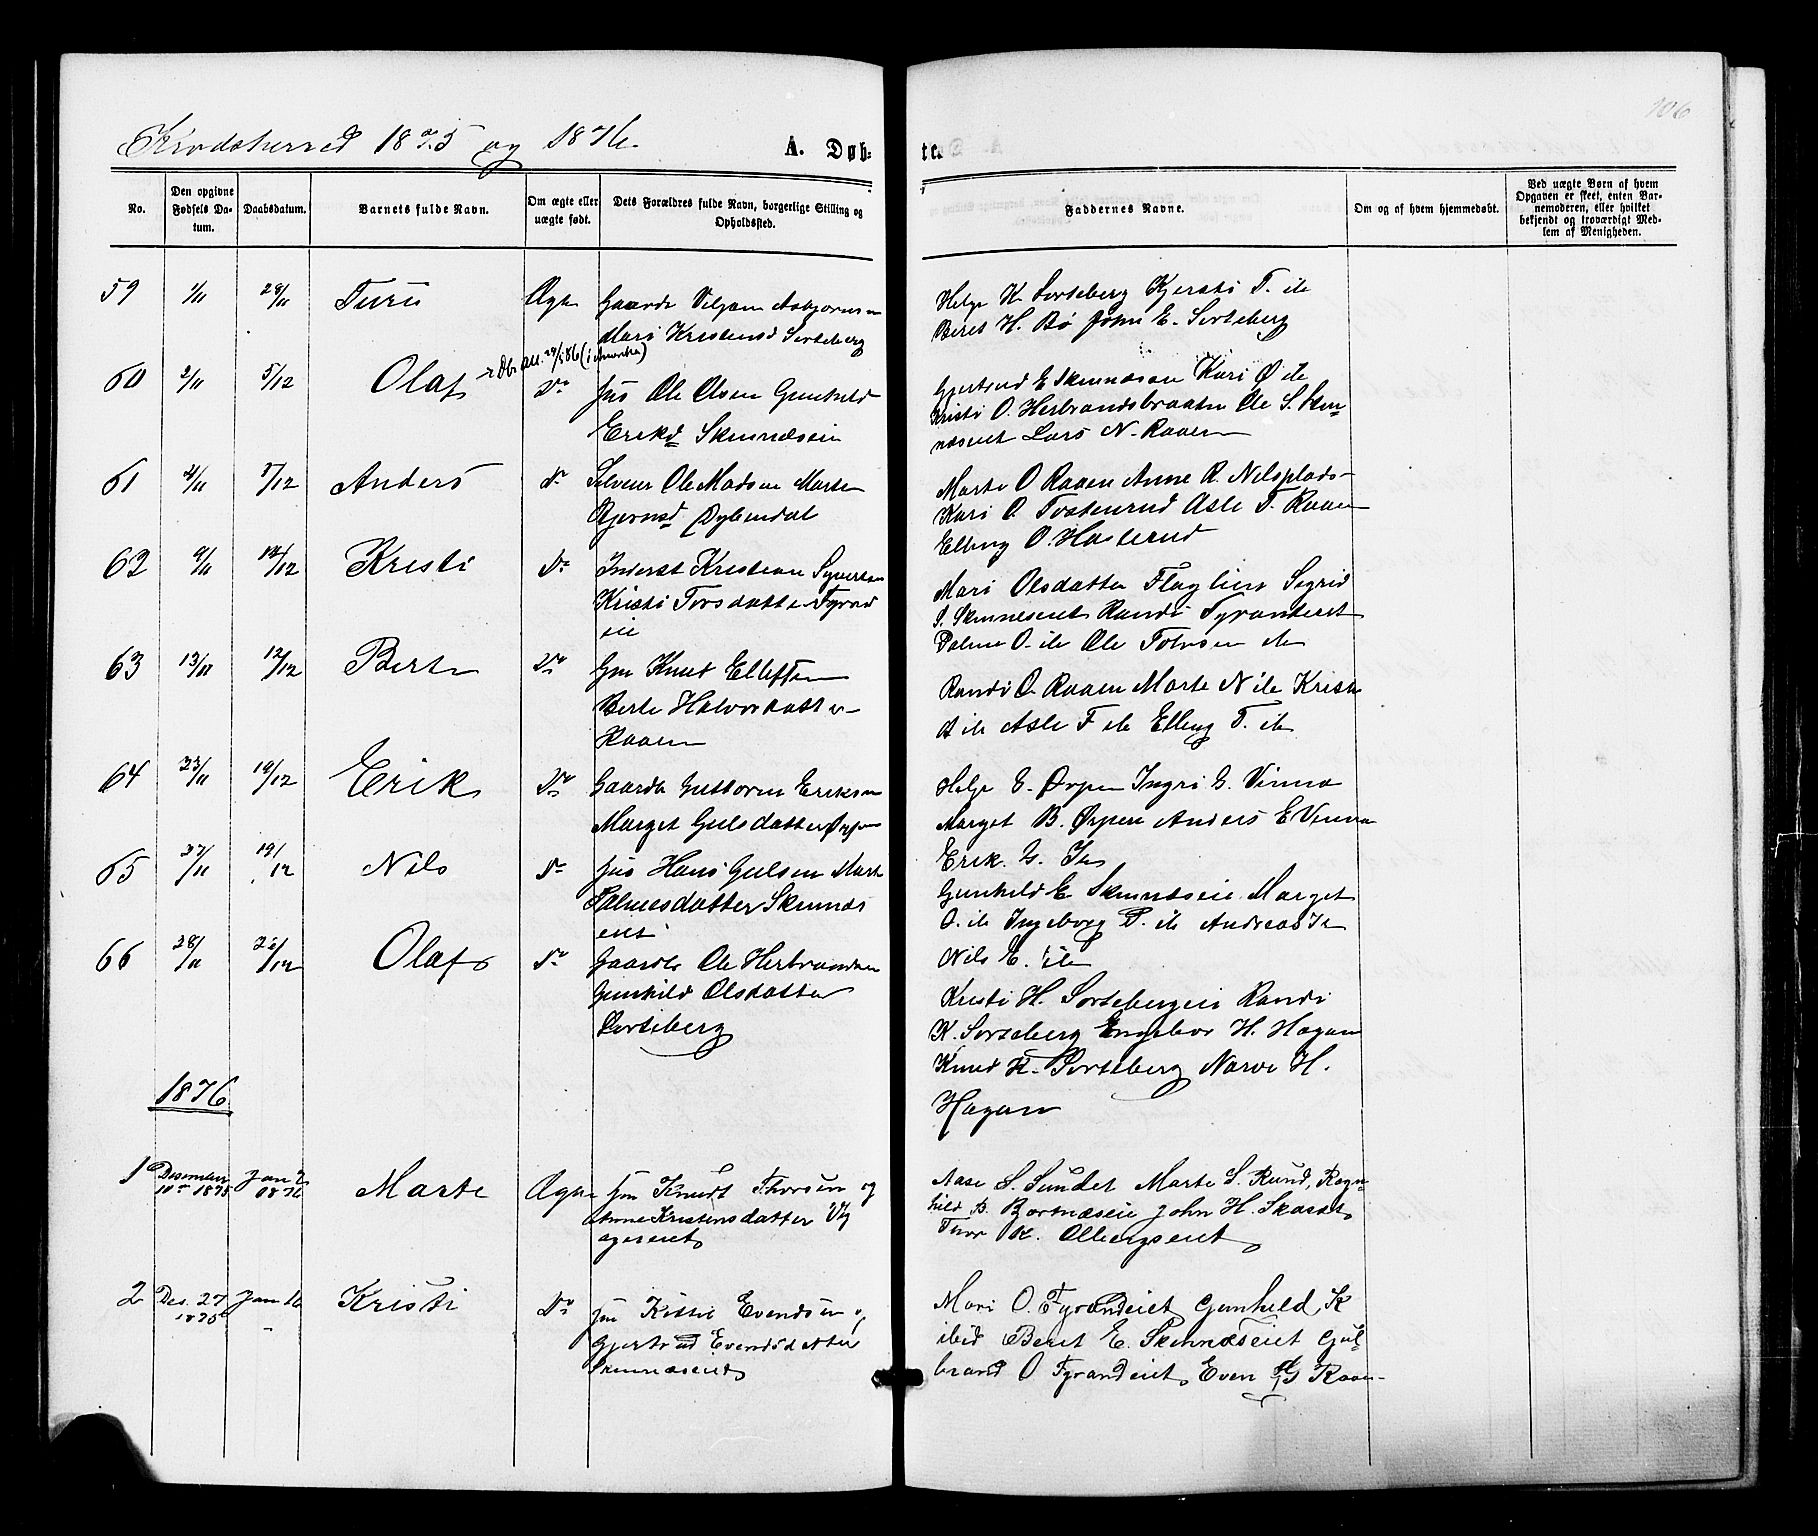 106
Krødsherred 1875 og 1876.
A. Døb-
te.
No.
Den opgivne Fødsels Da-tum.
Daabsdatum.
Barnets fulde Navn.
Om ægte eller uægte født.
Dets Forældres fulde Navn, borgerlige Stilling og Opholdssted.
Faddernes Navne.
Om og af hvem hjemmedøbt.
Ved uægte Børn af hvem Opgaven er skeet, enten Bar-nemoderen, eller hvilket bekjendt og troværdigt Med-lem af Menigheden.
59 1/11 28/11 Turi Ægte Gaardb
Mari Kristensd Sorteberg
Helge K. Sorteberg Kjersti T. ib
Beret H. Bø John E. Sorteberg
60 2/11 5/12 Olaf Do Jus Ole Olsen Gunhild
Eriksd Skinnæseie
Gjertrud E Skinnæseie Kari Ø ib
Kristi O. Herbrandsbraaten Ole S. Skin-
næseiet Lars N. Raaen
61 2/11 5/12 Anders Do Selveier Ole Madsen Marte
Bjørnsd Dybendal
Marte O Raaen Anne R. Nilsplads
Kari O. Tostenrud Asle T. Raaen
Elling O. Haslerud
62 9/11 12/12 Kristi Do Inderst Kristian Syversen
Kristi Torsdatter Fyrand
eie
Mari Olsdatter Flaglien Sigrid
S. Skinneseiet Randi Fyrandeiet
O. ib Ole ib
63 13/11 12/12 Berte Do Gm Knut Ellefsen
Berte Halvorsdatter
Raaen
Randi O. Raaen Marte N ib Kristi
A ib Asle F ib Elling T. ib
64 23/11 19/12 Erik Do Gaardb Guttorm Eriksen
Marget Gulsdatter Ørpen
Helge E. Ørpen Ingri G. Vinnæ
Marget B. Ørpen Anders E Vinnæ
Erik G. Ib
65 27/11 19/12 Nils Do Jus Hans Gulsen Marte
Palmesdatter Skinnæs
eiet
Gunhild E Skinnæseie Marget
O. ib Ingeborg P. ib Andreas Ib
Nils E. ib
66 28/11 26/12 Olaf Do Gaardb Ole Herbrandsen
Gunhild Olsdatter
Sorteberg
Kristi H. Sortebergeie Randi
K. Sorteberg Engebor H. Hagan
Knud K. Sorteberg Narve H.
Hagan
1876
1 Desember 10de 1875 Jan 2 1876 Marte Ægte Jm Knudt Thorsen og
Anne Kristensdatter
Aase S. Sundet Marte S. Rund, Ragn-
hild B. Bjørnæseie John H. Skaret
Thor K. Olbergseiet
2 Des. 27 1875 Jan 16 Kristi Do Jm Kittil Evendsen og
Gjertrud Evendsdatter
Skinnæseiet
Mari O. Fyrandeiet Gunhild K
ibid Beret E. Skinnæseiet Gul-
brand O Fyrandeiet Even G Raaen